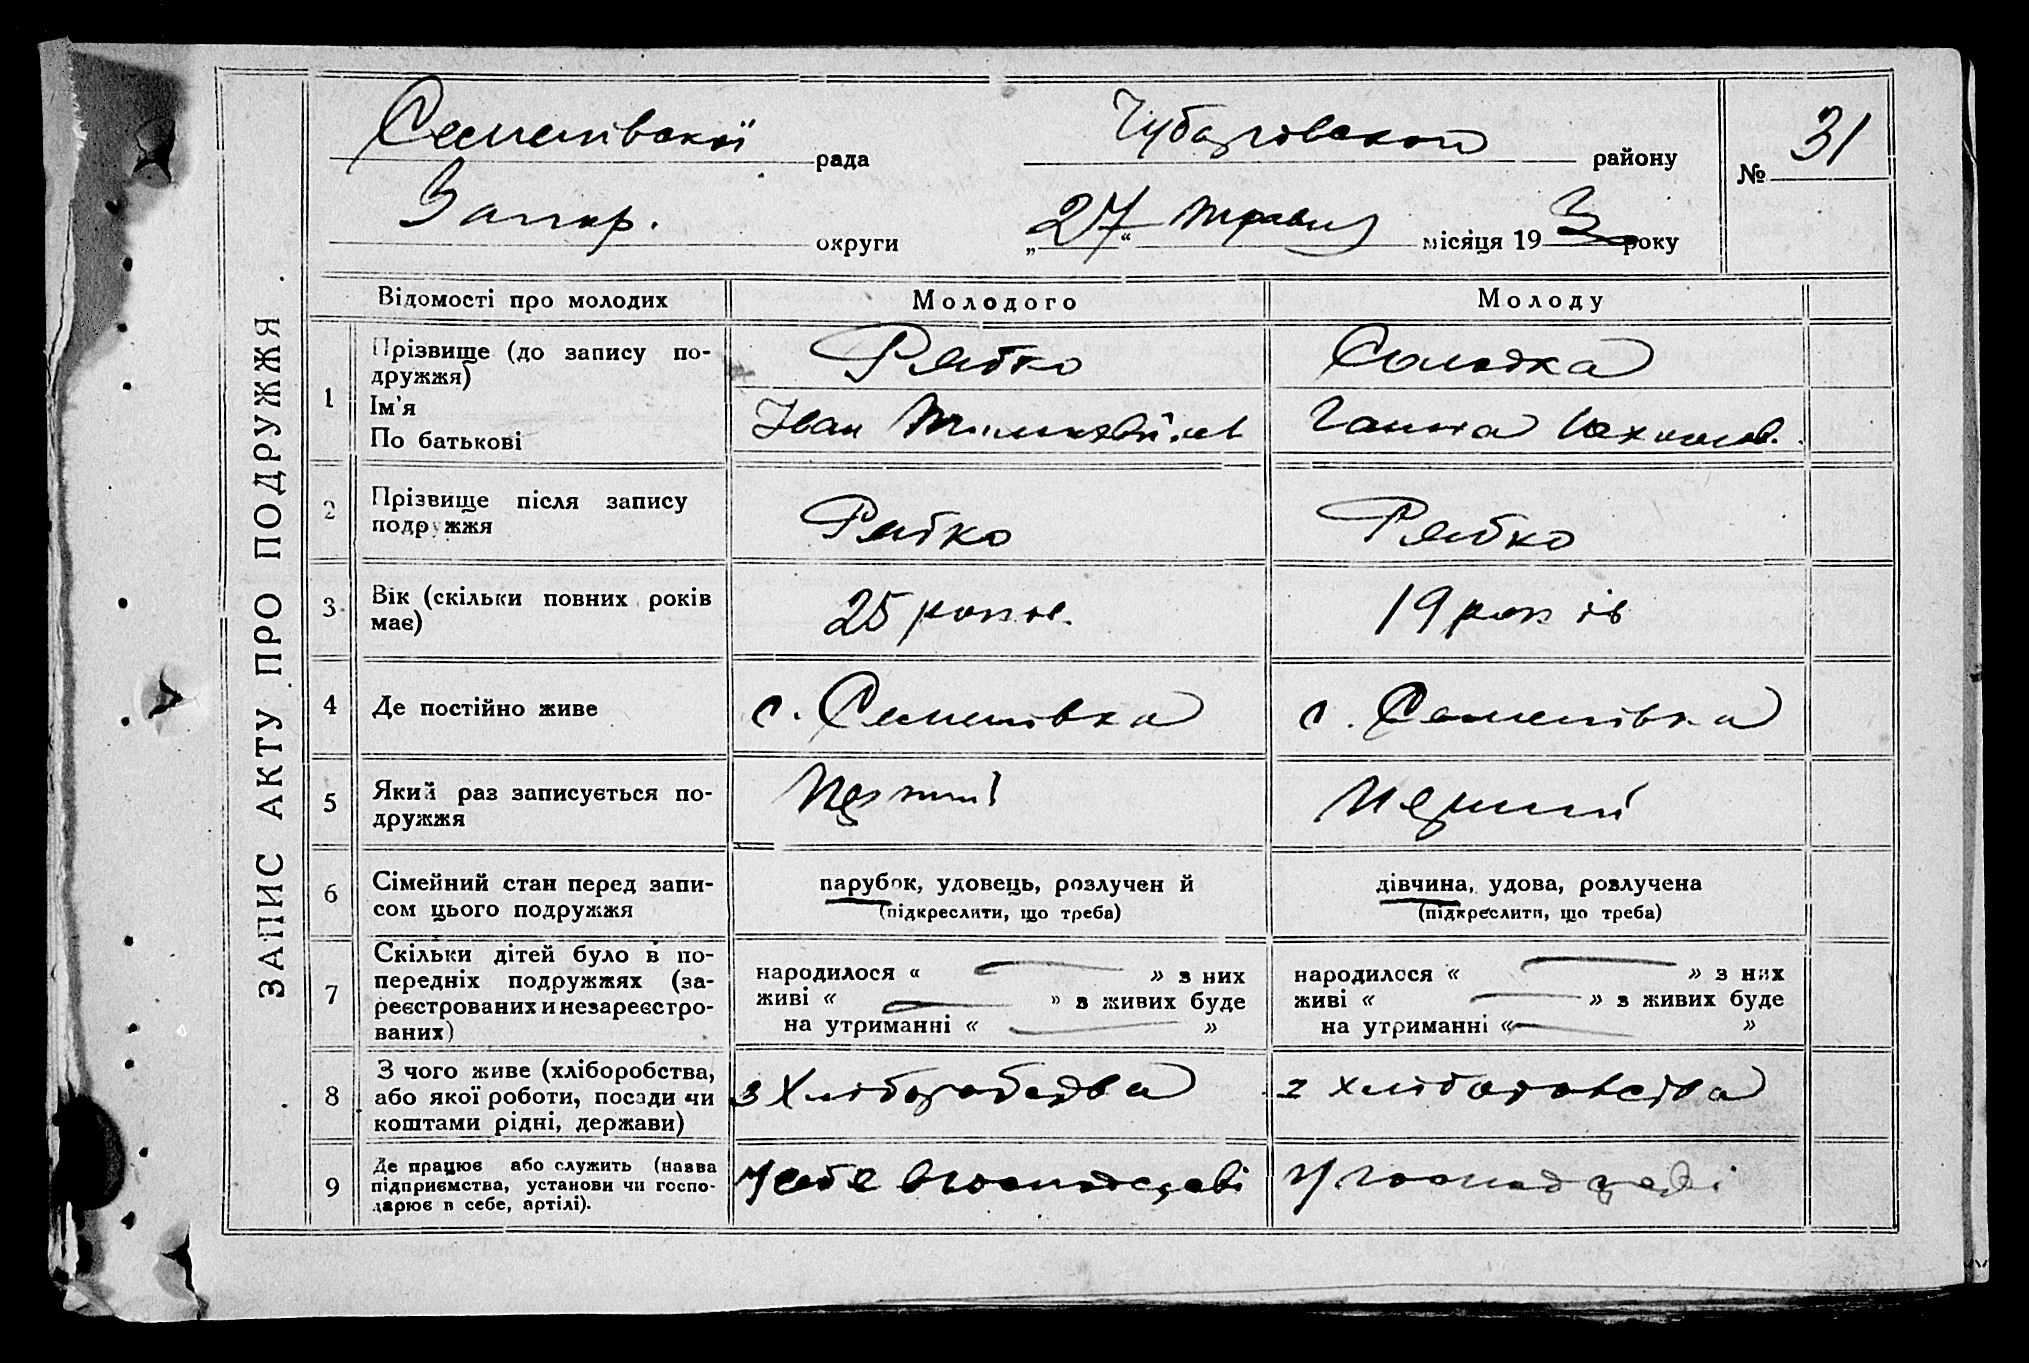 ЗАПИС АКТУ ПРО ПОДРУЖЖЯ
Семенівскої рада Чубарівской району № 31
Запор. округи „27“ травня місяця 193 року
Відомості про молодих Молодого Молоду
1 Прізвище (до запису по-
дружжя) Рябко Солодка
Ім'я
По батькові Іван Ганна
2 Прізвище після запису
подружжя Рябко Рябко
3 Вік (скільки повних років
має) 25 років. 19 років
4 Де постійно живе с. Семенівка с. Семенівка
5 Який раз записується по-
дружжя Перший Перший
6 Сімейний стан перед запи-
сом цього подружжя
парубок, удовець, розлучен й
(підкреслити, що треба)
дівчина, удова, розлучена
(підкреслити, що треба)
7 Скільки дітей було в по-
передніх подружжях (за-
реєстрованих и незареєстро-
ваних)
народилося « — » з них
живі « — » з живих буде
на утриманні « — »
народилося « — » з них
живі « — » з живих буде
на утриманні « — »
8 З чого живе (хліборобства,
або якої роботи, посади чи
коштами рідні, держави) з Хліборобства з хліборобства
9 Де працює або служить (назва
підприємства, установи чи госпо-
дарює в себе, артілі). У себе в господарстві У господарстві